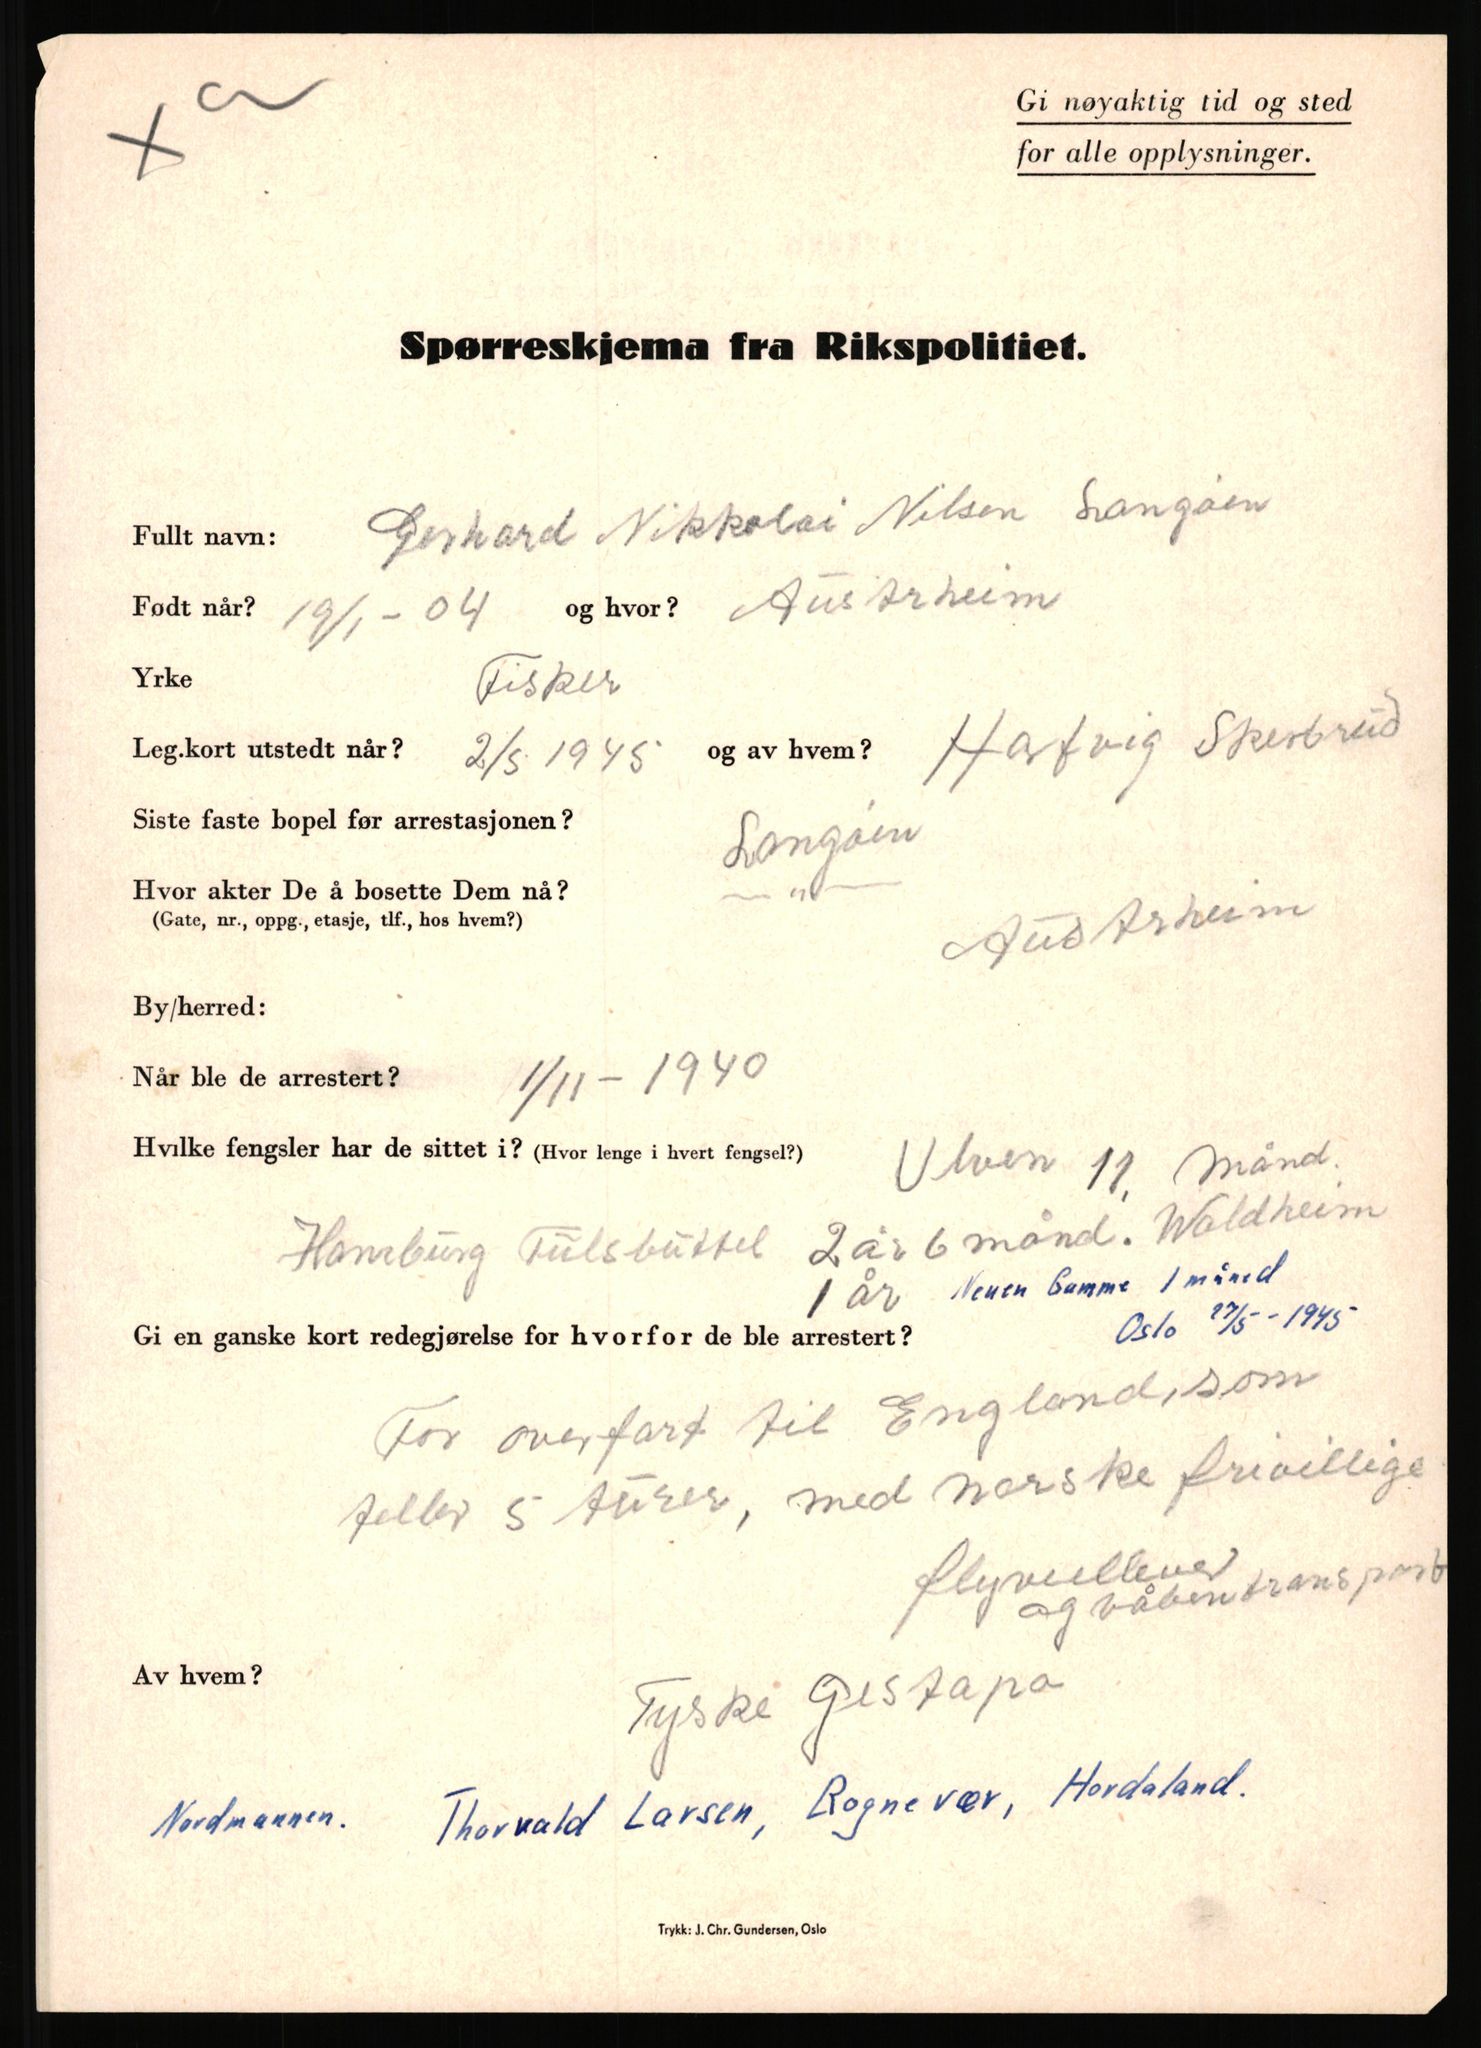 Gi nøyaktig tid og sted
for alle opplysninger.
Spørreskjema fra Rikspolitiet.
Fullt navn: Gerhard Nikkolai Nilsen Langøen
Født når? 19/1 - 04 og hvor? Austrheim
Yrke Fisker
Leg.kort utstedt når? 2/5 1945 og av hvem?
Siste faste bopel før arrestasjonen? Langøen
Hvor akter De å bosette Dem nå? — " —
(Gate, nr., oppg., etasje, tlf., hos hvem?) Austrheim
By/herred:
Når ble de arrestert? 1/11 - 1940
Hvilke fengsler har de sittet i? (Hvor lenge i hvert fengsel?) Ulven 11, månd.
Hamburg Fulsbuttel 2 år 6 månd. Waldheim
1 år Neuen Gamme 1 måned
Oslo 27/5 - 1945
Gi en ganske kort redegjørelse for hvorfor de ble arrestert?
For overfart til England, som
teller 5 turer, med norske frivillige
flyvellever
og våbentransport
Av hvem? Tyske Gestapo
Nordmannen. Thorvald Larsen, Rognevær, Hordaland.
Trykk: J. Chr. Gundersen, Oslo